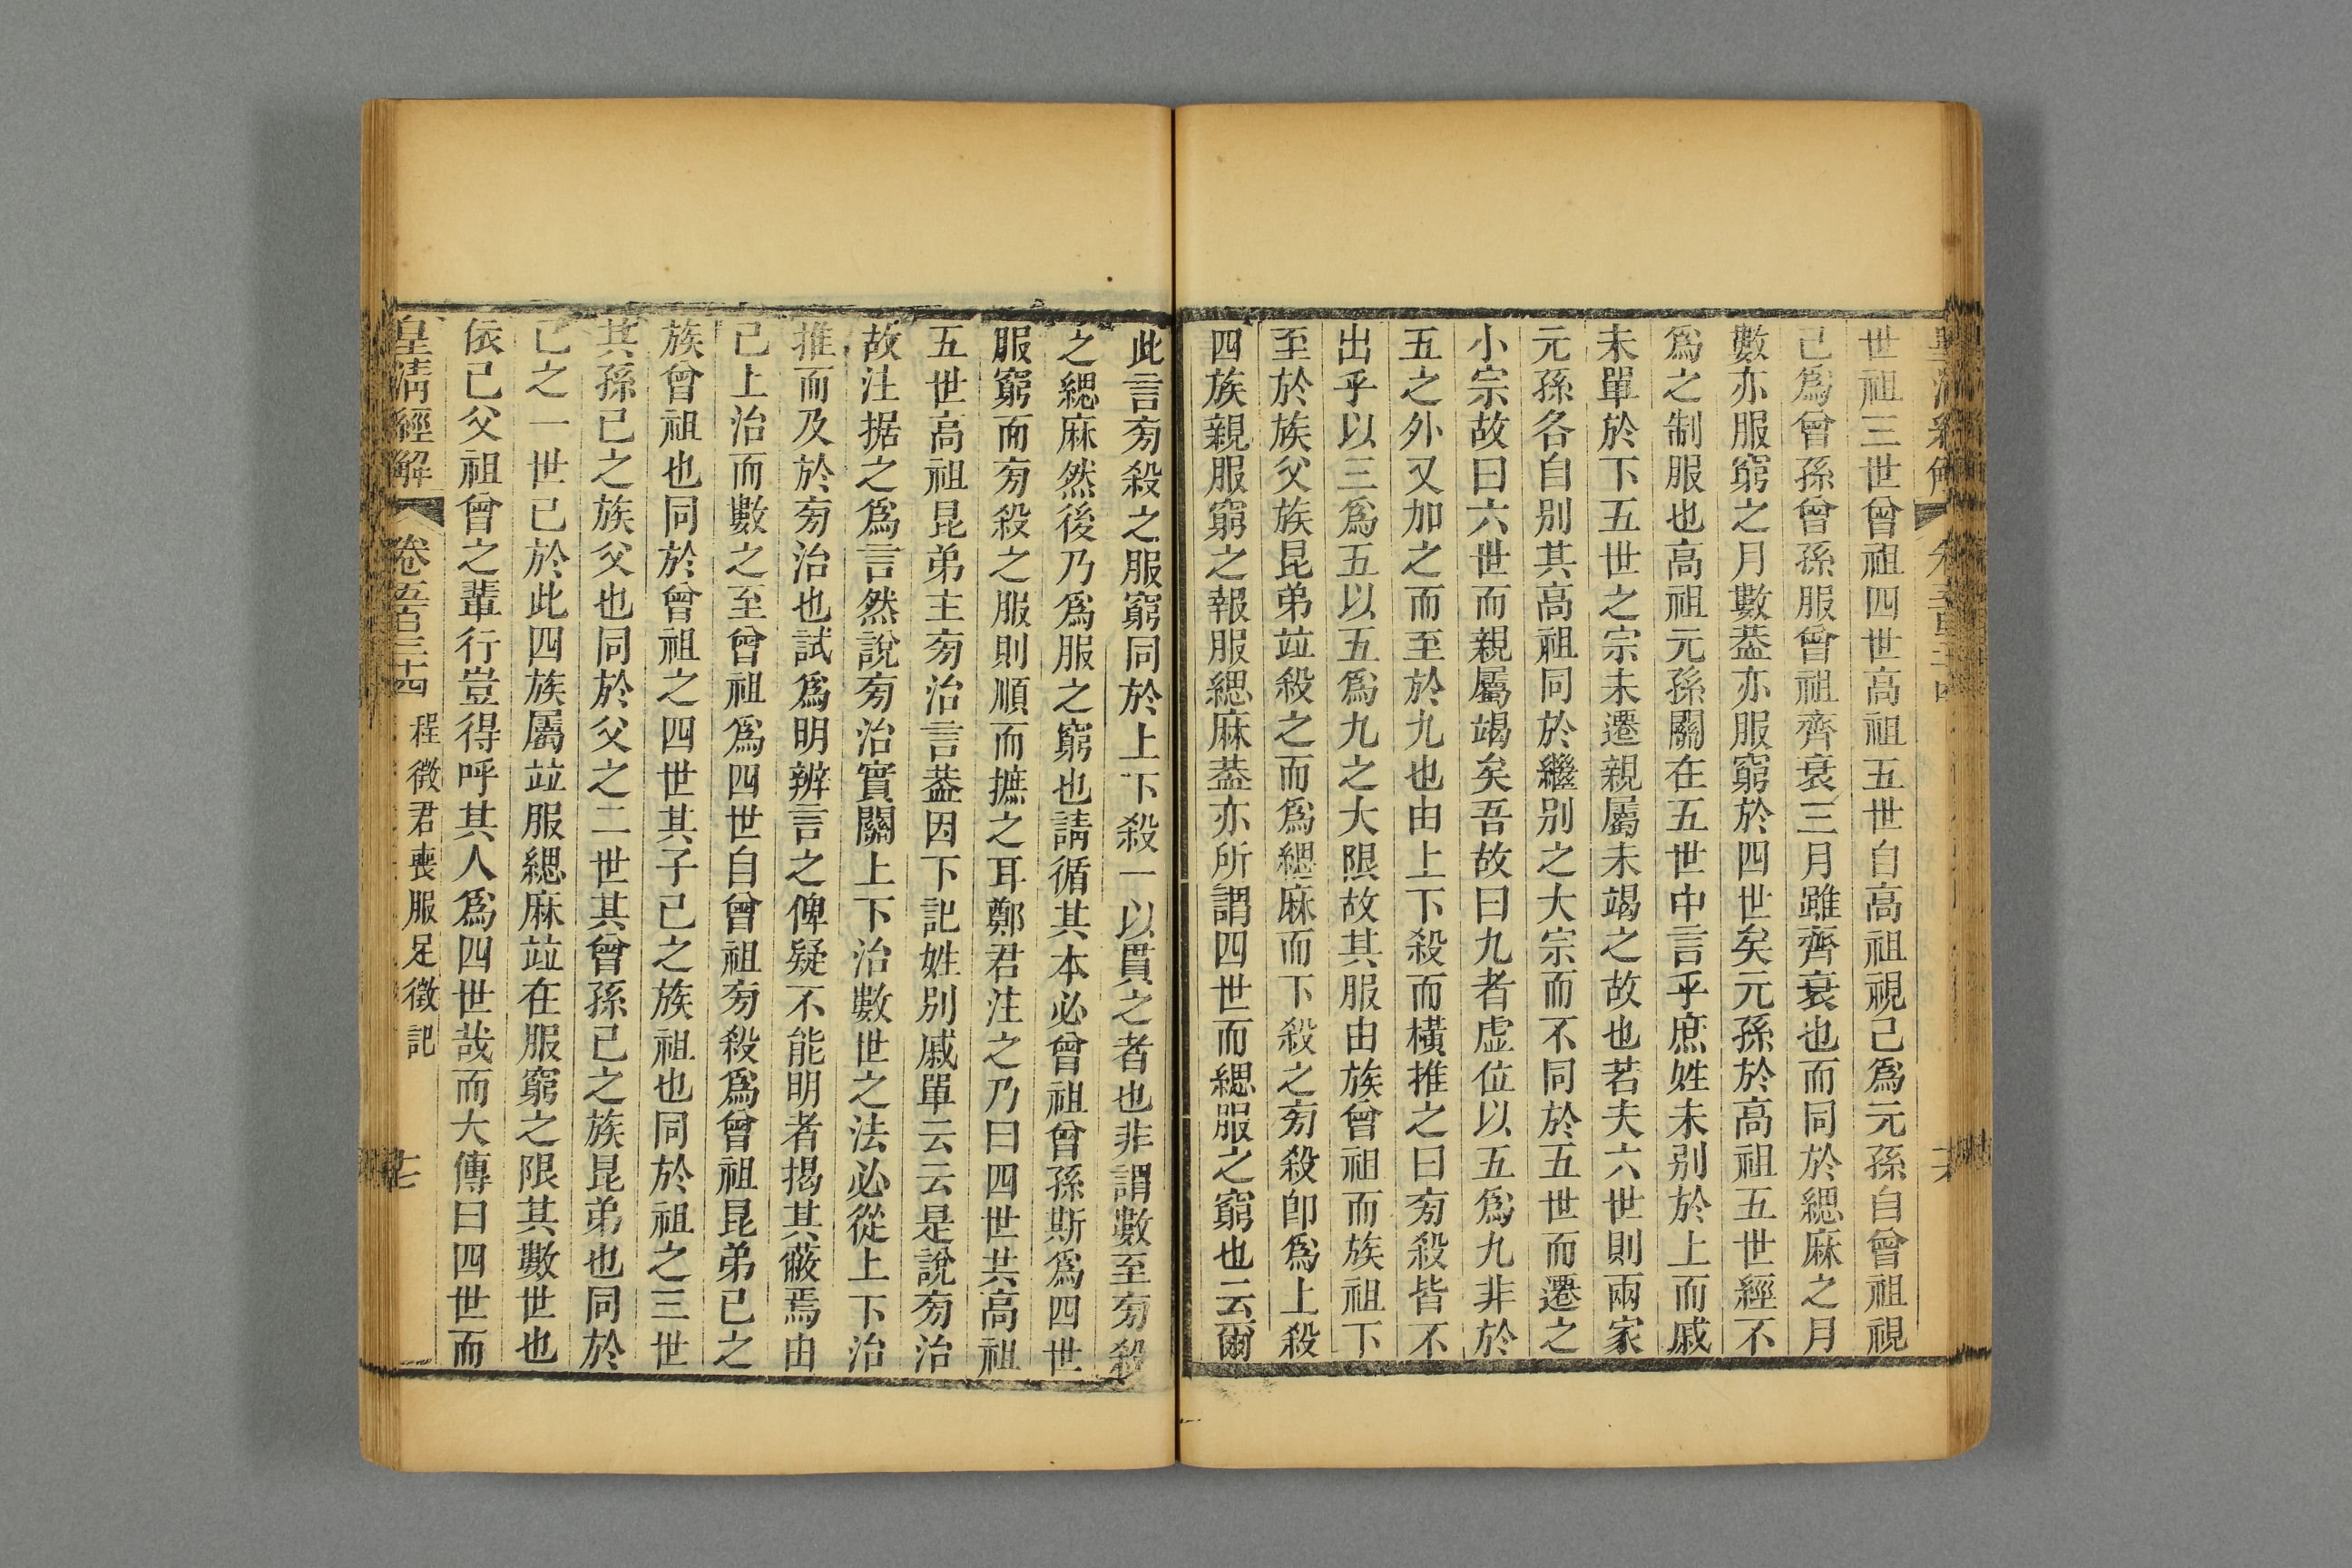 世祖三世曾祖四世高祖五世自高祖視己爲元孫自曾祖視
己爲曾孫曾孫服曾祖齊衰三月雖齊衰也而同於緦麻之月
數亦服窮之月數葢亦服窮於四世矣元孫於高祖五世經不
爲之制服也高祖元孫關在五世中言乎庶姓未別於上而戚
未單於下五世之宗未遷親屬未竭之故也若夫六世則兩家
元孫各自別其高祖同於繼別之大宗而不同於五世而遷之
小宗故曰六世而親屬竭矣吾故曰九者虛位以五爲九非於
五之外又加之而至於九也由上下殺而橫推之曰旁殺皆不
出乎以三爲五以五爲九之大限故其服由族曾祖而族祖下
至於族父族昆弟竝殺之而爲緦麻而下殺之旁殺卽爲上殺
四族親服窮之報服緦麻葢亦所謂四世而緦服之窮也云爾
此言旁殺之服窮同於上下殺一以貫之者也非謂數至旁殺
之緦麻然後乃爲服之窮也請循其本必曾祖曾孫斯爲四世
服窮而旁殺之服則順而摭之耳鄭君注之乃曰四世共高祖
五世高祖昆弟主旁治言葢因下記姓別戚單云云是說旁治
故注据之爲言然說旁治實關上下治數世之法必從上下治
推而及於旁治也試爲明辨言之俾疑不能明者揭其蔽焉由
己上治而數之至曾祖爲四世自曾祖旁殺爲曾祖昆弟己之
族曾祖也同於曾祖之四世其子己之族祖也同於祖之三世
其孫己之族父也同於父之二世其曾孫己之族昆弟也同於
己之一世己於此四族屬竝服緦麻竝在服窮之限其數世也
依己父祖曾之輩行豈得呼其人爲四世哉而大傳曰四世而
皇淸經解 卷五百三十四 程徵君喪服足徵記 七